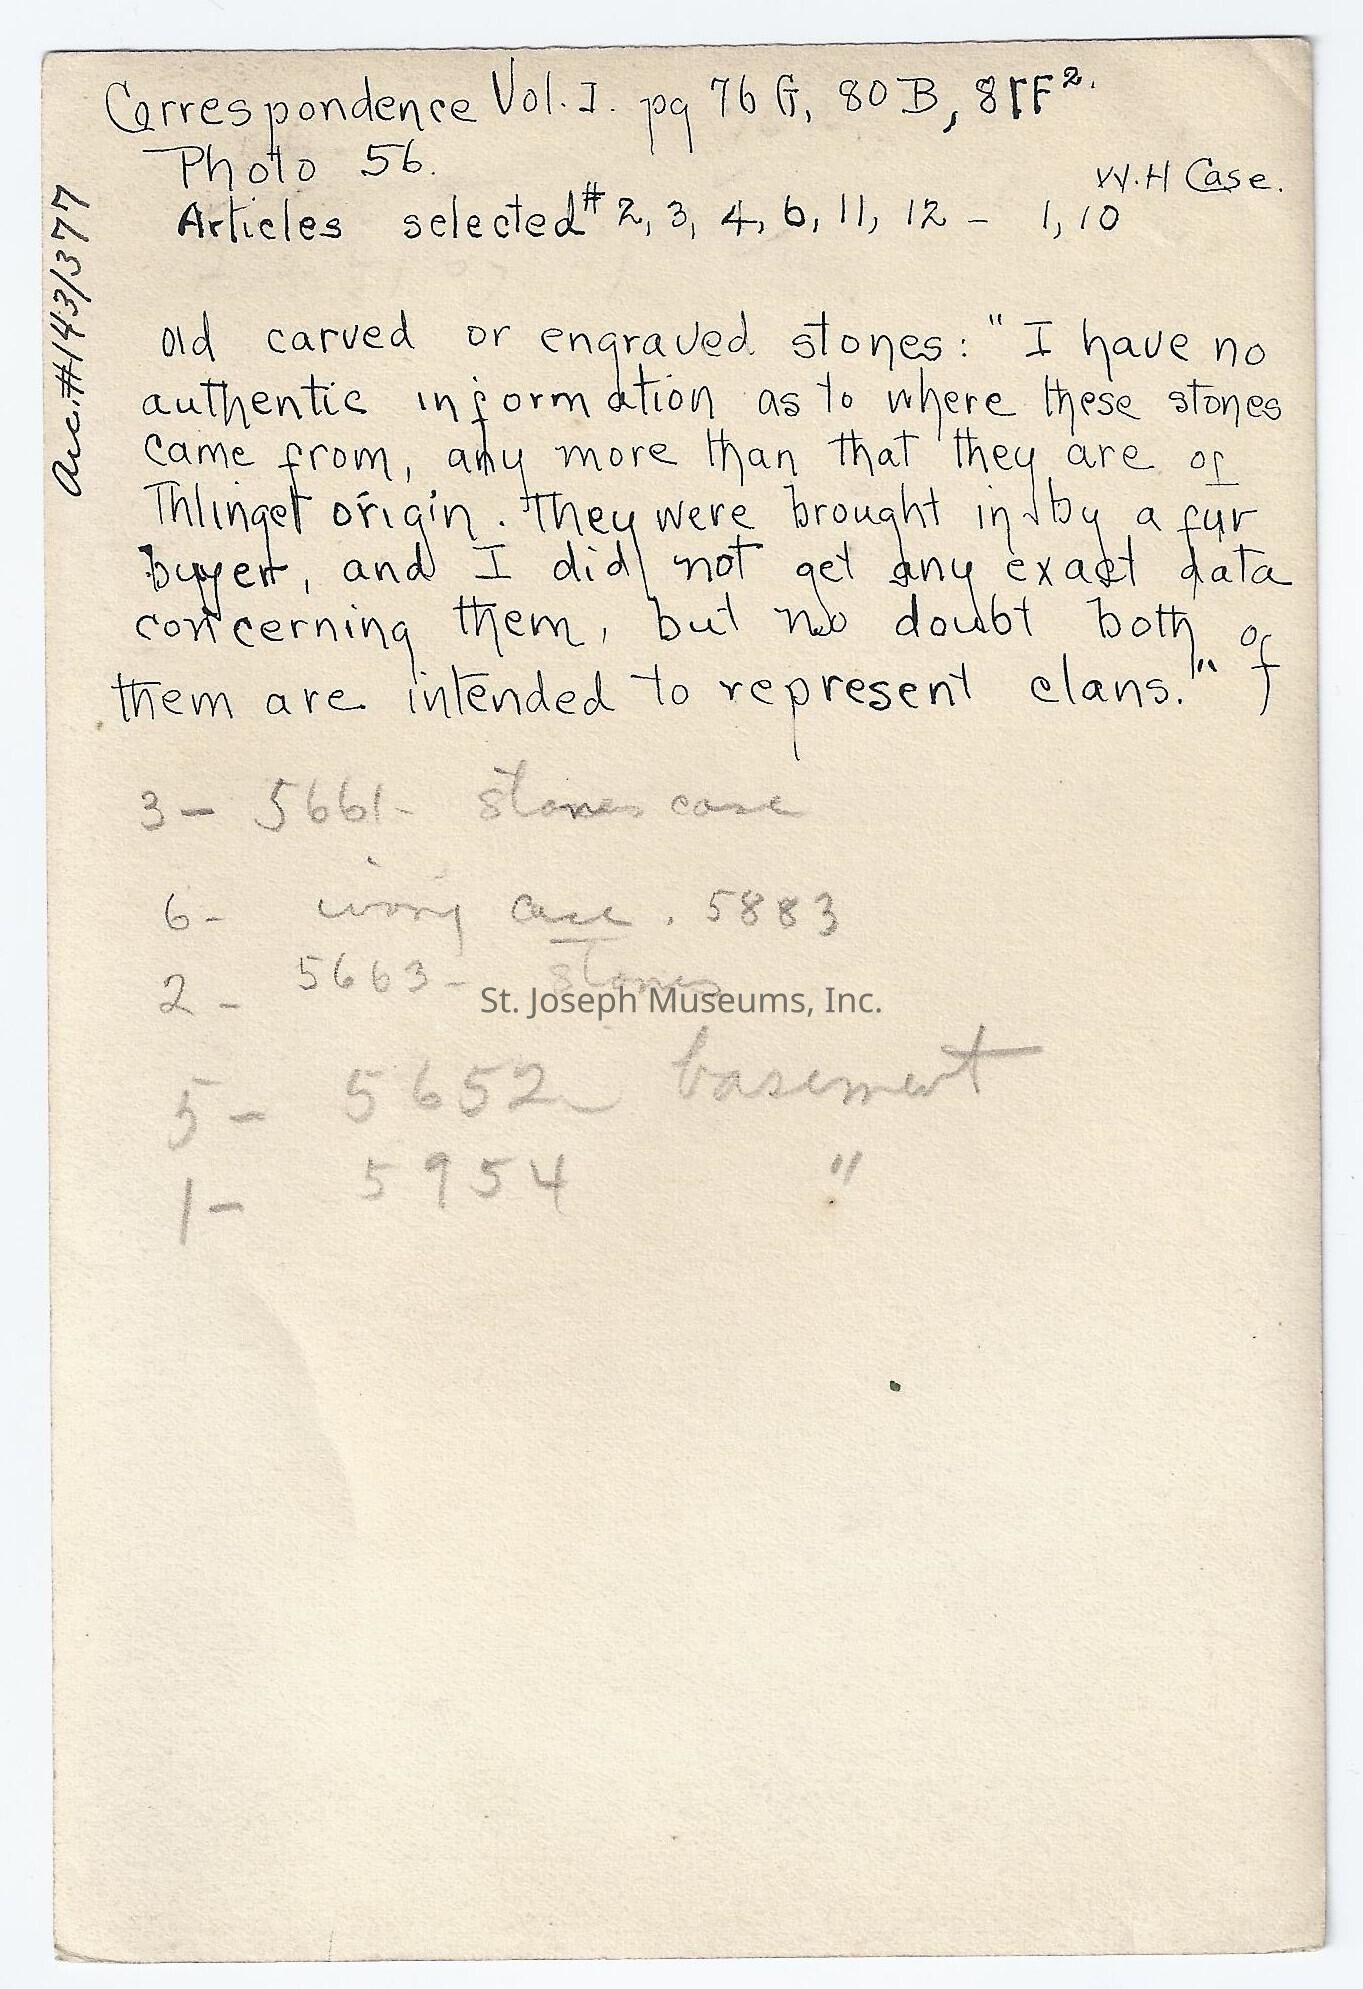 Correspondence Vol. I. pg 76 G, 80 B, 81F².
Photo 56.
W.H Case.
Articles selected # 2, 3, 4, 6, 11, 12 – 1, 10
Acc.#143/377
old carved or engraved stones: "I have no
authentic information as to where these stones
came from, any more than that they are of
Thlinget origin. They were brought in by a fur
buyer, and I did not get any exact data
concerning them, but no doubt both of
them are intended to represent clans."
3 – 5661 – stones case
6 – ivory case. 5883
2 – 5663 – stones
St. Joseph Museums, Inc.
5 – 5652 – basement
1 – 5954 "